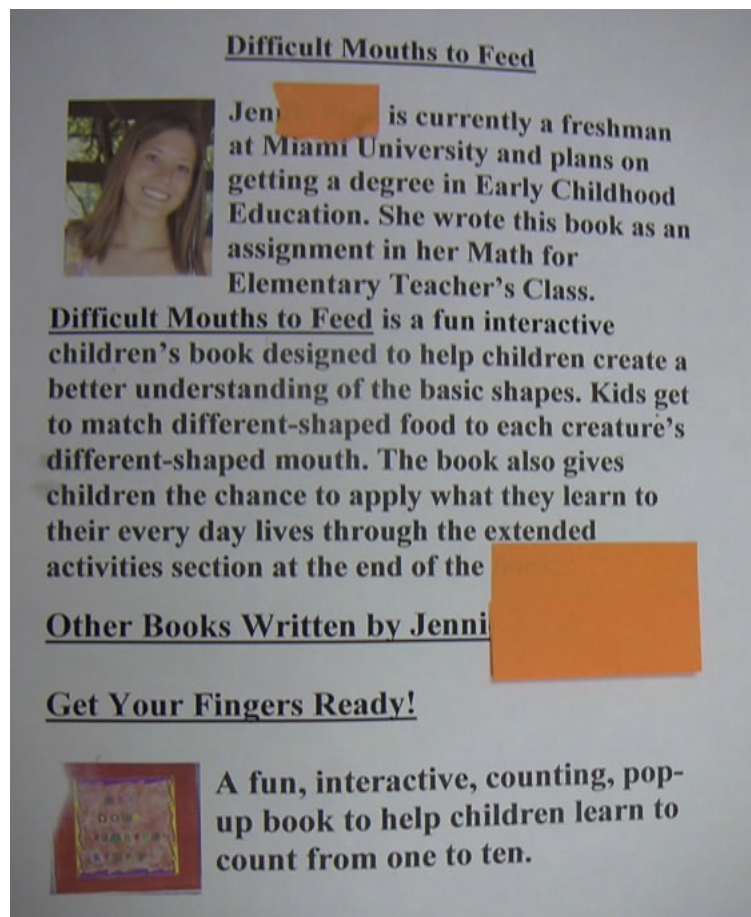 Difficult Mouths to Feed
Jenn is currently a freshman
at Miami University and plans on
getting a degree in Early Childhood
Education. She wrote this book as an
assignment in her Math for
Elementary Teacher's Class.
Difficult Mouths to Feed is a fun interactive
children's book designed to help children create a
better understanding of the basic shapes. Kids get
to match different-shaped food to each creature's
different-shaped mouth. The book also gives
children the chance to apply what they learn to
their every day lives through the extended
activities section at the end of the
Other Books Written by Jenni
Get Your Fingers Ready!
A fun, interactive, counting, pop-
up book to help children learn to
count from one to ten.